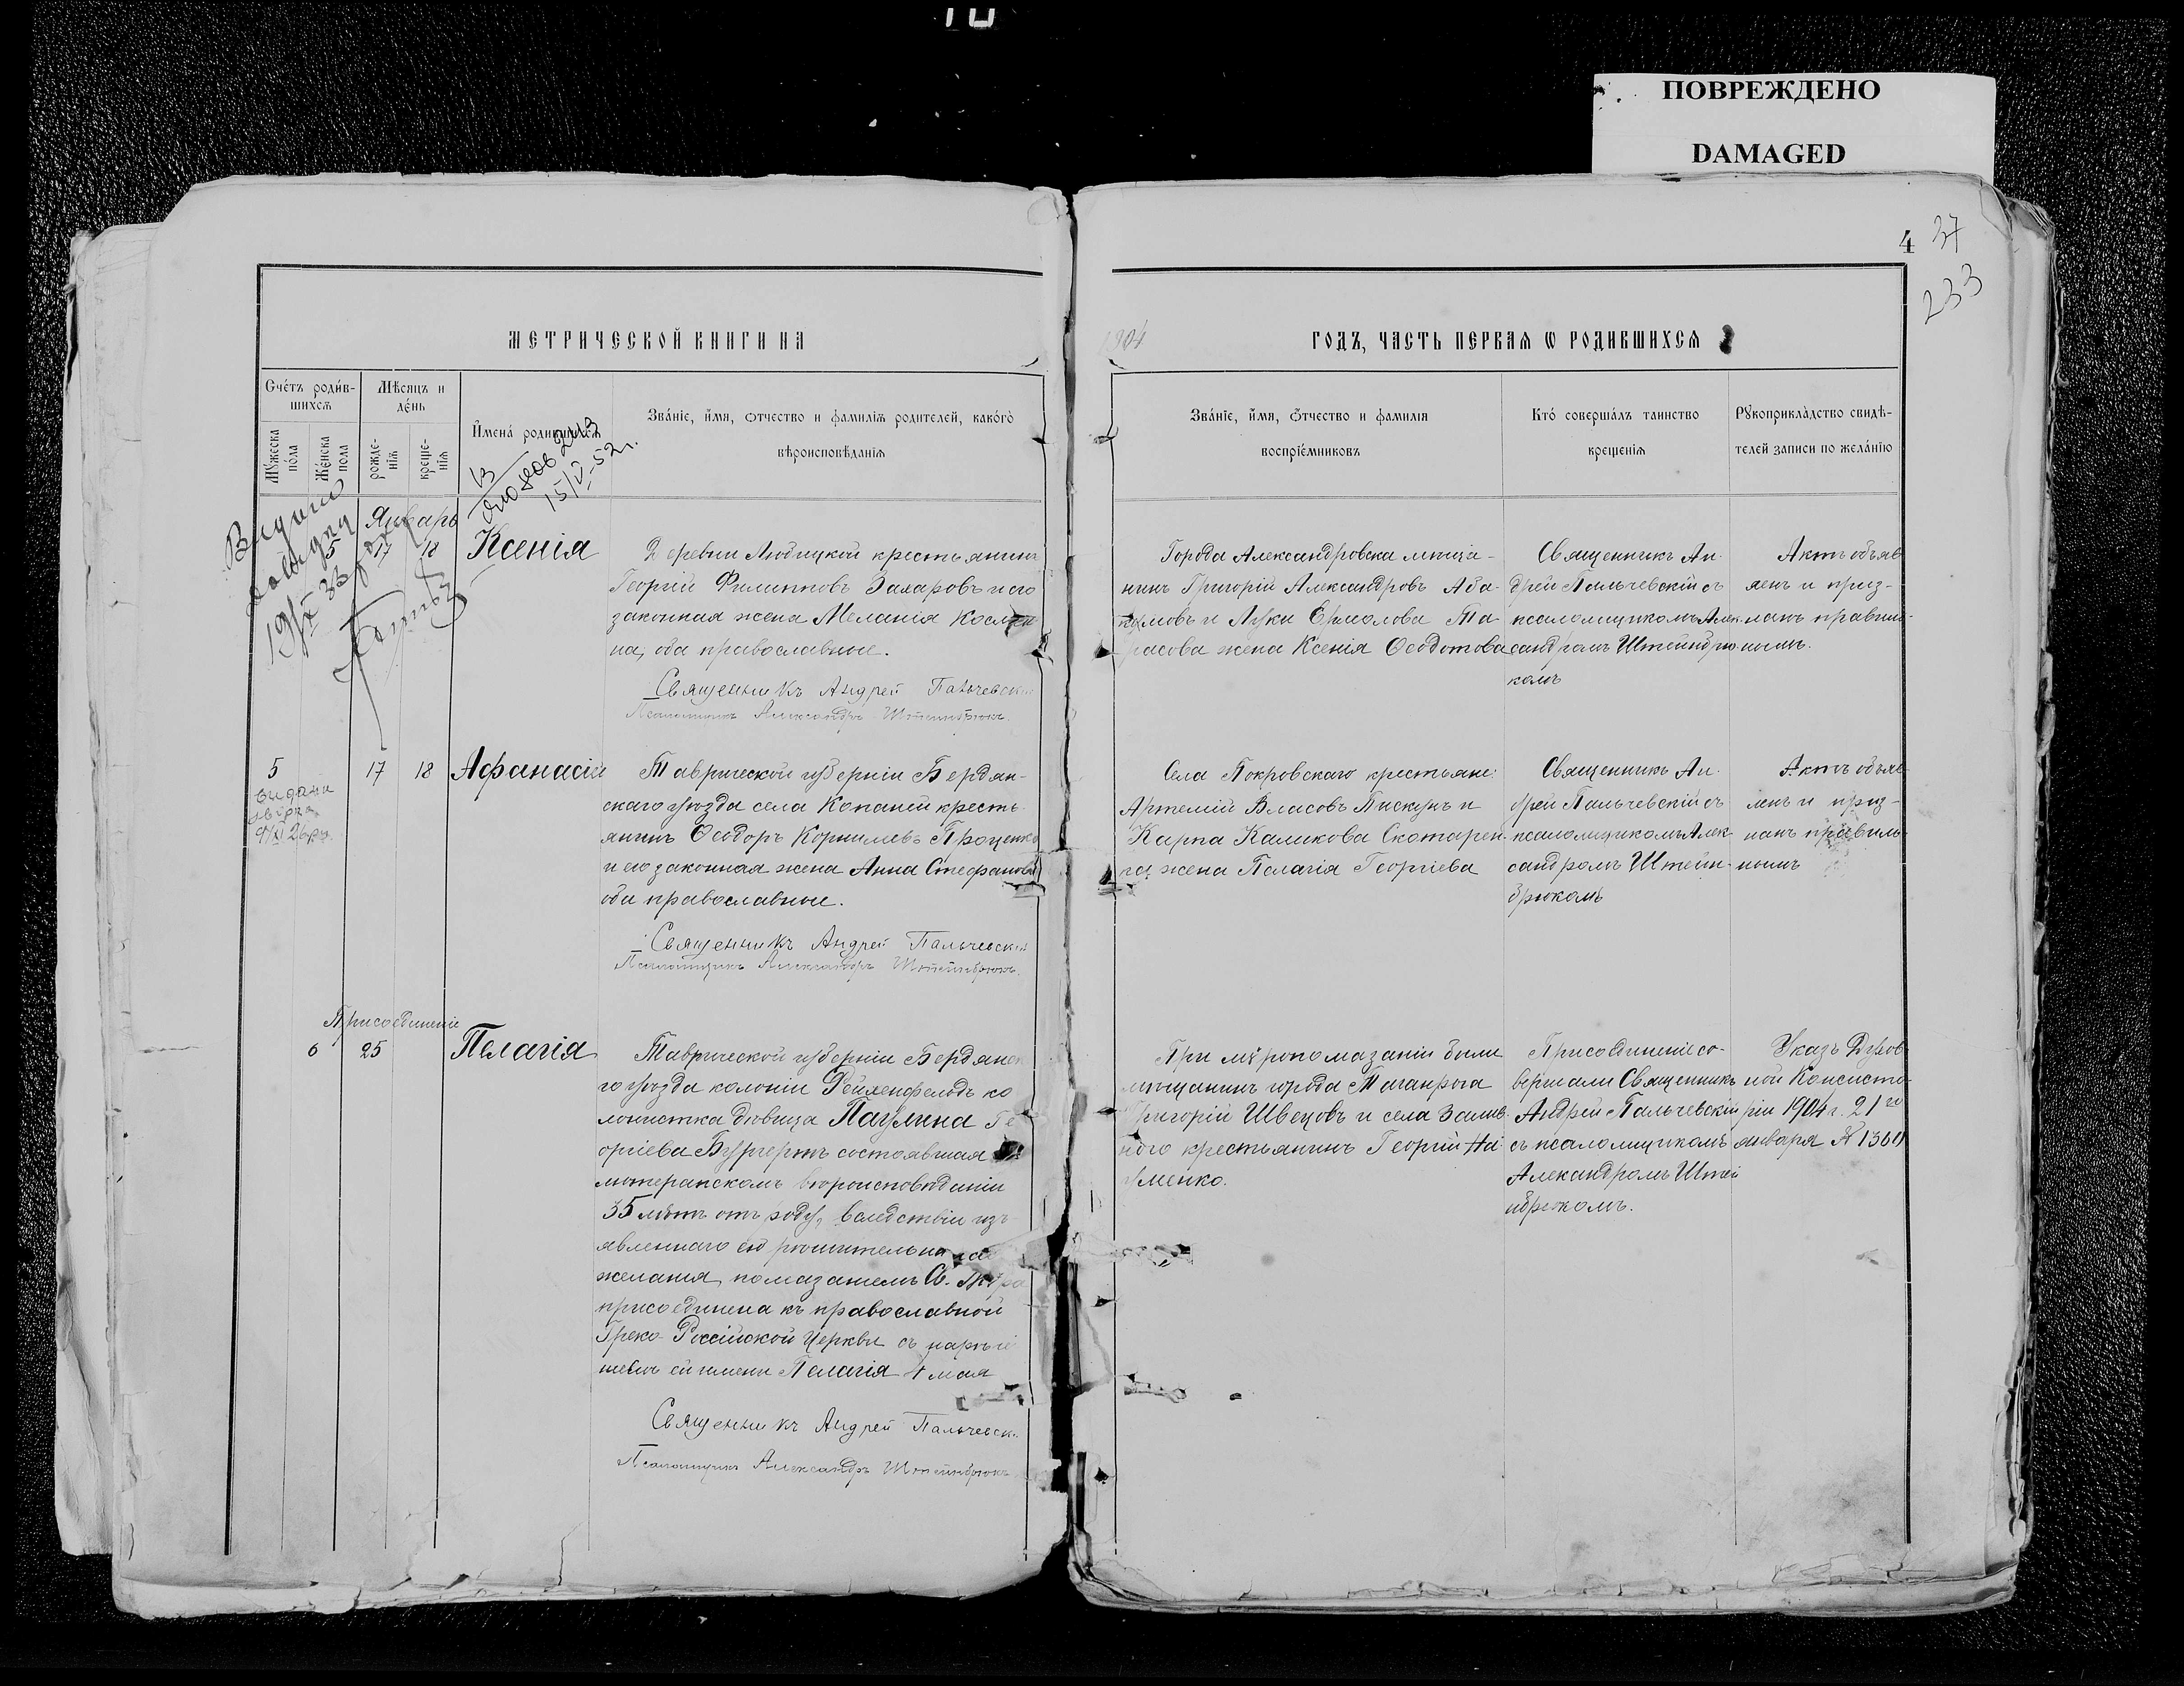 ПОВРЕЖДЕНО
DAMAGED
4 37
233
МЕТРИЧЕСКОЙ КНИГИ НА
1904 ГОДЪ, ЧАСТЬ ПЕРВАЯ Ѡ РОДИВШИХСЯ
Счетъ родив-
шихся
Мѣсяцъ и
день
Мужеска
пола
Женска
пола
рожде-
нія
креще-
нія
Имена родившихся
Званіе, имя, отчество и фамилія родителей, какого
вѣроисповѣданія
Званіе, имя, отчество и фамилія
воспріемниковъ
Кто совершалъ таинство
крещенія
Рукоприкладство свидѣ-
телей записи по желанію
15/V-52г.
Видано
довідку
19/X 33
Январь
5 17 18 Ксенія
Деревни Любицкой крестьянинъ
Георгій Филиповъ Захаровъ и его
законная жена Меланія Косми
на, оба православные.
Священникъ Андрей Пальчевскій
Псаломщикъ Александръ Штейнбрюкъ.
Города Александровска мѣща-
нинъ Григорій Александровъ Аба-
кумовъ и Луки Ермолова Та-
расова жена Ксенія Ѳеодотова
Священникъ Ан-
дрей Пальчевскій съ
псаломщикомъ Алек-
сандромъ Штейнбрю-
комъ
Актъ объяв
ленъ и приз-
нанъ правиль-
нымъ.
5 17 18 Афанасій
видана
9/XI 26р.
Таврической губерніи Бердян-
скаго уѣзда села Копаней кресть-
янинъ Ѳеодоръ Корнилевъ Проценко
и его законная жена Анна Стефанова
оба православные.
Священникъ Андрей Пальчевскій
Псаломщикъ Александръ Штейнбрюкъ.
Села Покровскаго крестьяне:
Артемій Власовъ Пискунъ и
Карпа Каликова Скотарен-
ка жена Пелагія Георгіева
Священникъ Ан-
дрей Пальчевскій съ
псаломщикомъ Алек-
сандромъ Штейн-
брюкомъ
Актъ объяв-
ленъ и приз-
нанъ правиль-
нымъ
Присоединеніе
6 25 Пелагія
Таврической губерніи Бердянск
го уѣзда колоніи Рейхенфельдъ ко
лонистка дѣвица Паулина Ге
оргіева Бургертъ состоявшая
лютеранскомъ вѣроисповѣданіи
35 лѣтъ отъ роду, вслѣдствіи изъ
явленнаго ею рѣшительна
желанія, помазаніемъ Св. Мѵра
присоединена къ православной
Греко-Россійской Церкви съ нарѣче
ніемъ ей имени Пелагія 4 мая
Священникъ Андрей Пальчевск
Псаломщикъ Александръ Штейнбрюкъ
При мѵропомазаніи были
мѣщанинъ города Таганрога
Григорій Швецовъ и села Залив-
ного крестьянинъ Георгій
Присоединеніе со-
вершали Священникъ
Андрей Пальчевскій
съ псаломщикомъ
Александромъ Штей
нбрюкомъ.
Указъ Духов
ной Консисто-
ріи 1904 г. 21го
января № 1360